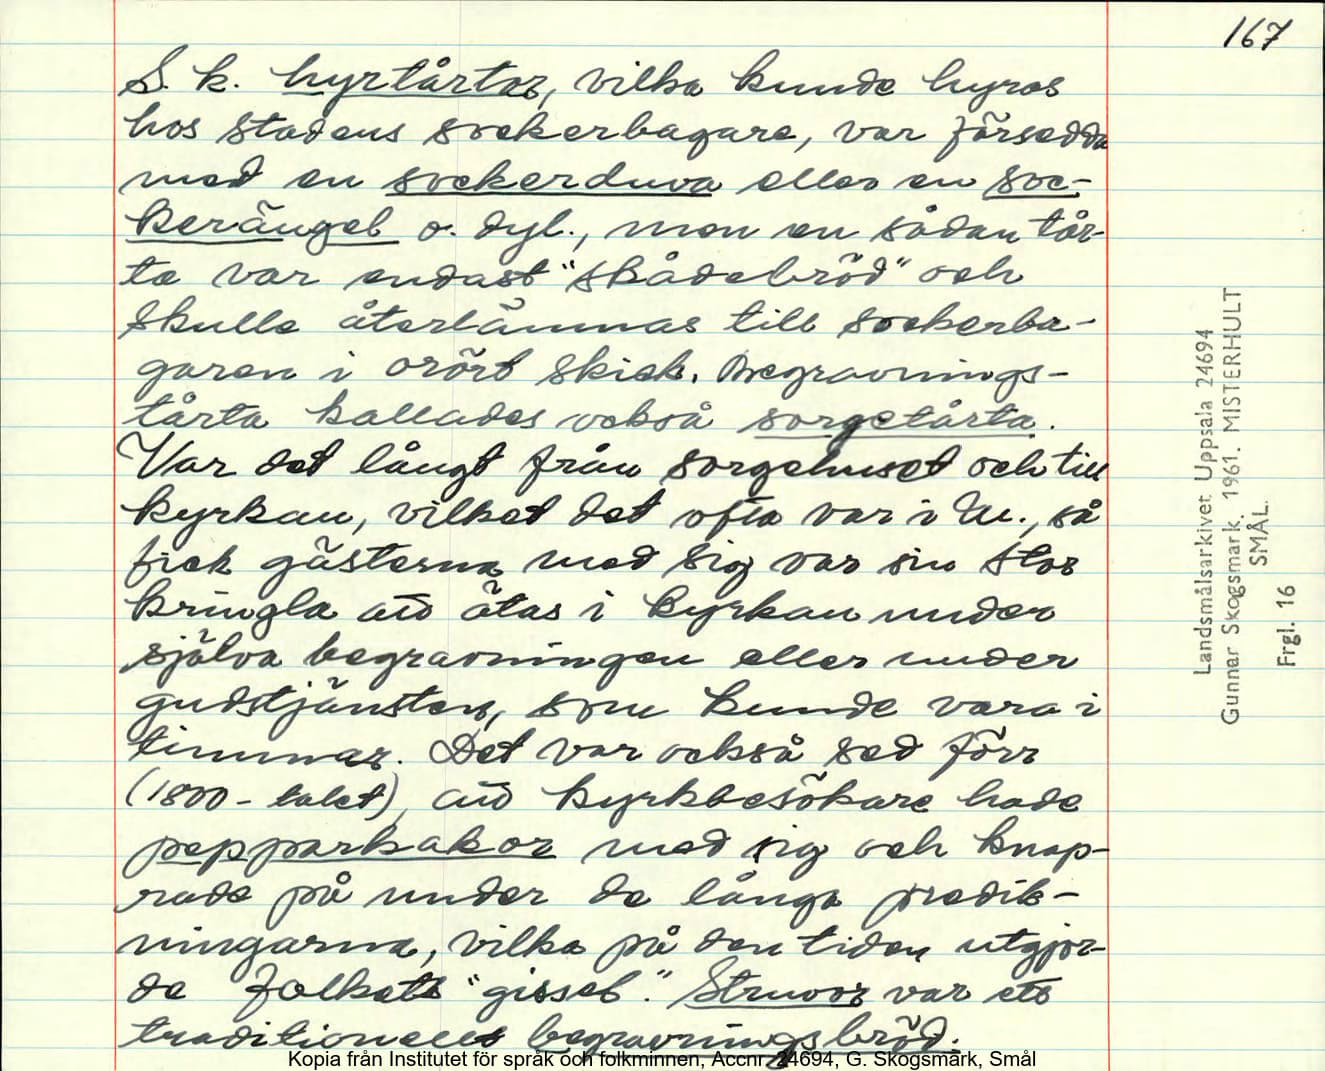 167
S. k. hyrtårtor, vilka kunde hyras
hos stadens sockerbagare, var försedda
med en sockerduva eller en soc-
kerängel o. dyl., men en sådan tår-
ta var endast "skådebröd" och
skulle återlämnas till sockerba-
garen i orört skick. Begravnings-
tårta kallades också sorgetårta.
Var det långt från sorgehuset och till
kyrkan, vilket det ofta var i M., så
fick gästerna med sig var sin stor
kringla att ätas i kyrkan under
själva begravningen eller under
gudstjänsten, som kunde vara i
timmar. Det var också sed förr
(1800-talet), att kyrkbesökare hade
pepparkakor med sig och knap-
rade på under de långa predik-
ningarna, vilka på den tiden utgjor-
de folkets "gissel". Struvor var ett
traditionellt begravningsbröd.
Landsmålsarkivet Uppsala 24694
Gunnar Skogsmark. 1961. MISTERHULT
SMÅL.
Frgl. 16
Kopia från Institutet för språk och folkminnen, Accnr. 24694, G. Skogsmark, Smål